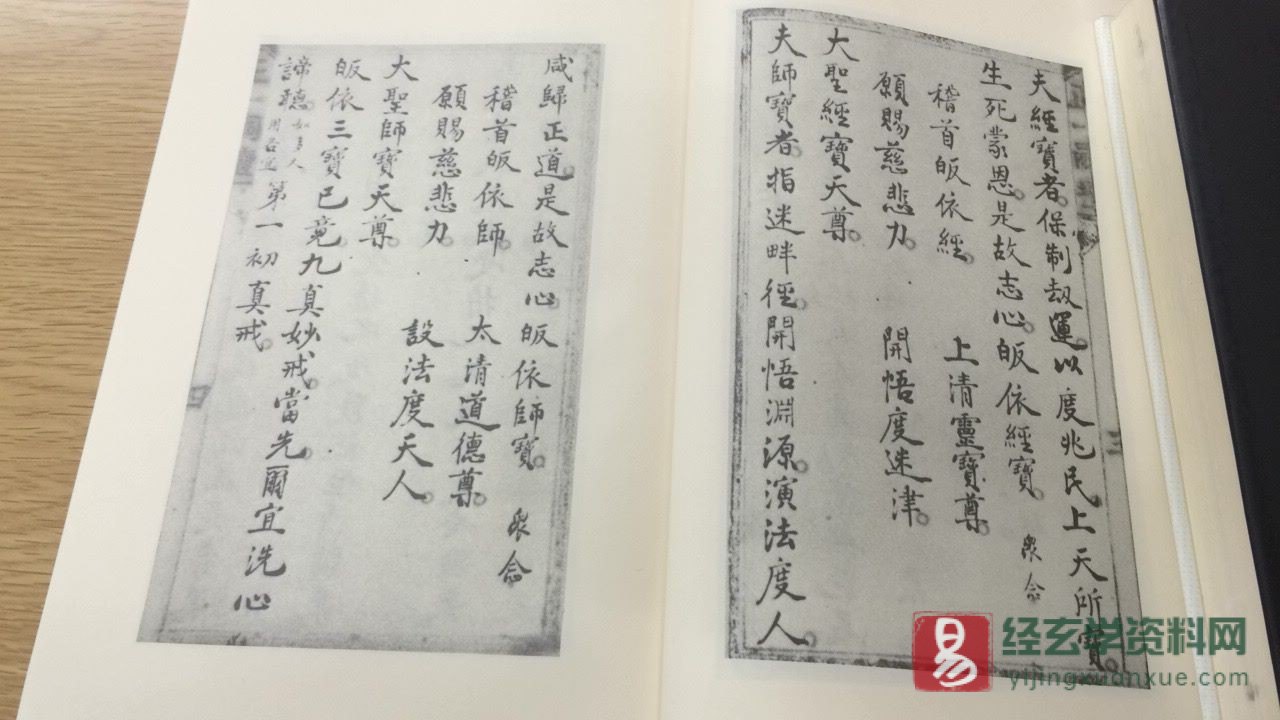 夫經寶者。保制劫運。以度兆民。上天所寶。
生死蒙恩。是故志心。皈依經寶。 衆念
稽首皈依經。 上清靈寶尊。
願賜慈悲力。 開悟度迷津。
大聖經寶天尊。
夫師寶者。指迷畔徑。開悟淵源。演法度人。
咸歸正道。是故志心。皈依師寶。 衆念
稽首皈依師。 太清道德尊。
願賜慈悲力。 設法度天人。
大聖師寶天尊。
皈依三寶已竟。九真妙戒。當先爾宜洗心
諦聽。 第一初真戒。
易
经玄学资料网
yijingxuanxue.com